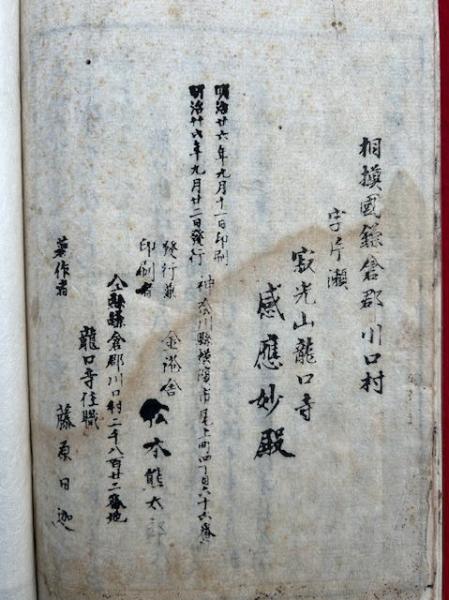 相摸國鎌倉郡川口村
字片瀬
寂光山龍口寺
感應妙殿
明治廿六年九月十一日印刷
明治廿六年九月廿二日發行
神奈川縣横濱市尾上町四丁目六十六番
發行兼
印刷者
金港舎
松本熊太
仝縣鎌倉郡川口村二千八百廿二番地
龍口寺住職
著作者
藤原日迦